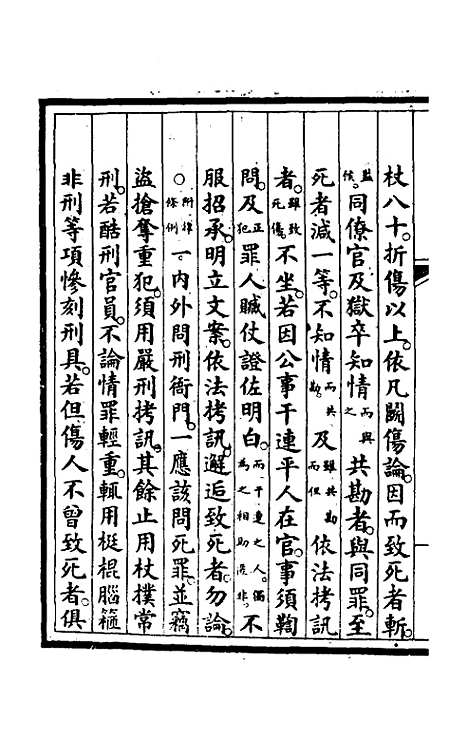 杖八十。折傷以上。依凡鬬傷論。因而致死者斬。
監候。同僚官及獄卒知情而與之共勘者。與同罪。至
死者減一等。不知情而共勘。及雖共勘而但依法拷訊
者。雖致死傷。不坐。若因公事干連平人在官。事須鞫
問。及正犯罪人贓仗證佐明白。而干連之人。獨為之相助匿非。不
服招承。明立文案。依法拷訊。邂逅致死者。勿論。
○所擇條例一內外問刑衙門。一應該問死罪。並竊
盜搶奪重犯。須用嚴刑拷訊。其餘止用杖撲常
刑。若酷刑官員。不論情罪輕重。輒用梃棍腦箍
非刑等項慘刻刑具。若但傷人不曾致死者。俱